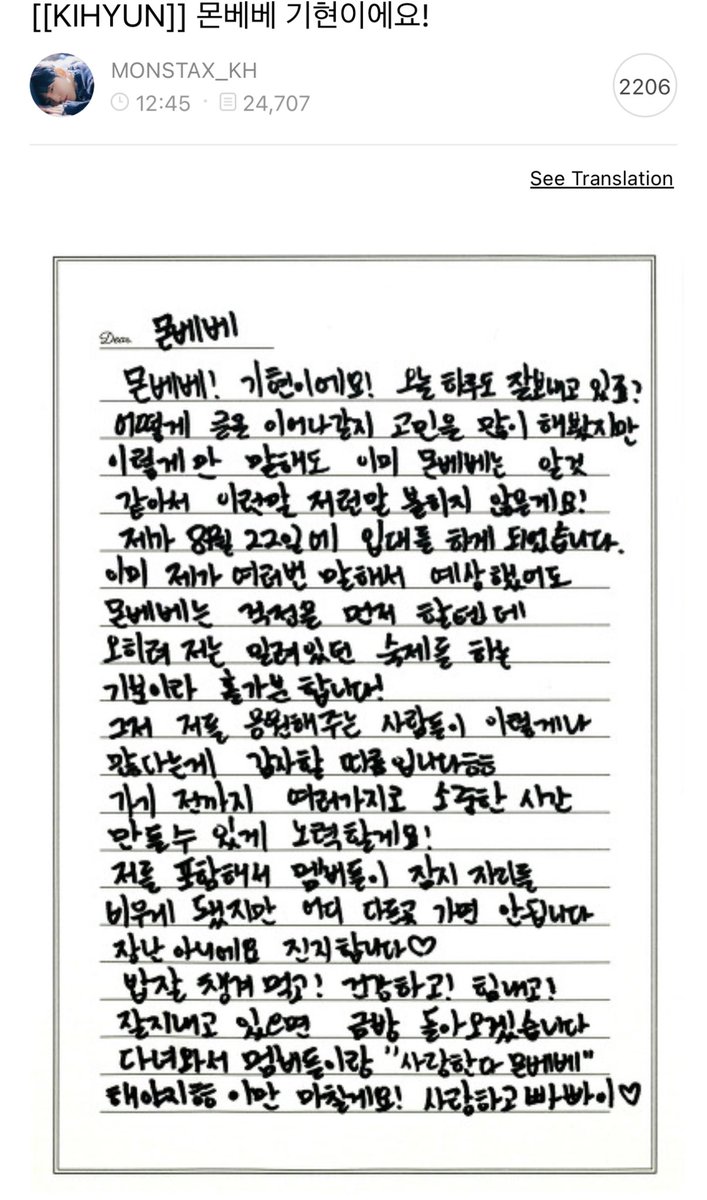 [[KIHYUN]] 몬베베 기현이에요!
MONSTAX_KH
12:45 · 24,707
2206
See Translation
Dear. 몬베베
몬베베! 기현이에요! 오늘 하루도 잘보내고 있죠?
어떻게 글을 이어나갈지 고민을 많이 해봤지만
이렇게만 말해도 이미 몬베베는 알것
같아서 이런말 저런말 붙히지 않을게요!
제가 8월 22일에 입대를 하게 되었습니다.
이미 제가 여러번 말해서 예상했어도
몬베베는 걱정을 먼저 할텐데
오히려 저는 밀려있던 숙제를 하는
기분이라 홀가분 합니다!
그저 저를 응원해주는 사람들이 이렇게나
많다는게 감사할 따름입니다ㅎㅎ
가기 전까지 여러가지로 소중한 시간
만들수 있게 노력할게요!
저를 포함해서 멤버들이 잠시 자리를
비우게 됐지만 어디 다른곳 가면 안됩니다
장난 아니에요 진지합니다♡
밥잘 챙겨 먹고! 건강하고! 힘내고!
잘지내고 있으면 금방 돌아오겠습니다
다녀와서 멤버들이랑 "사랑한다 몬베베"
해야지ㅎㅎ 이만 마칠게요! 사랑하고 빠빠이♡